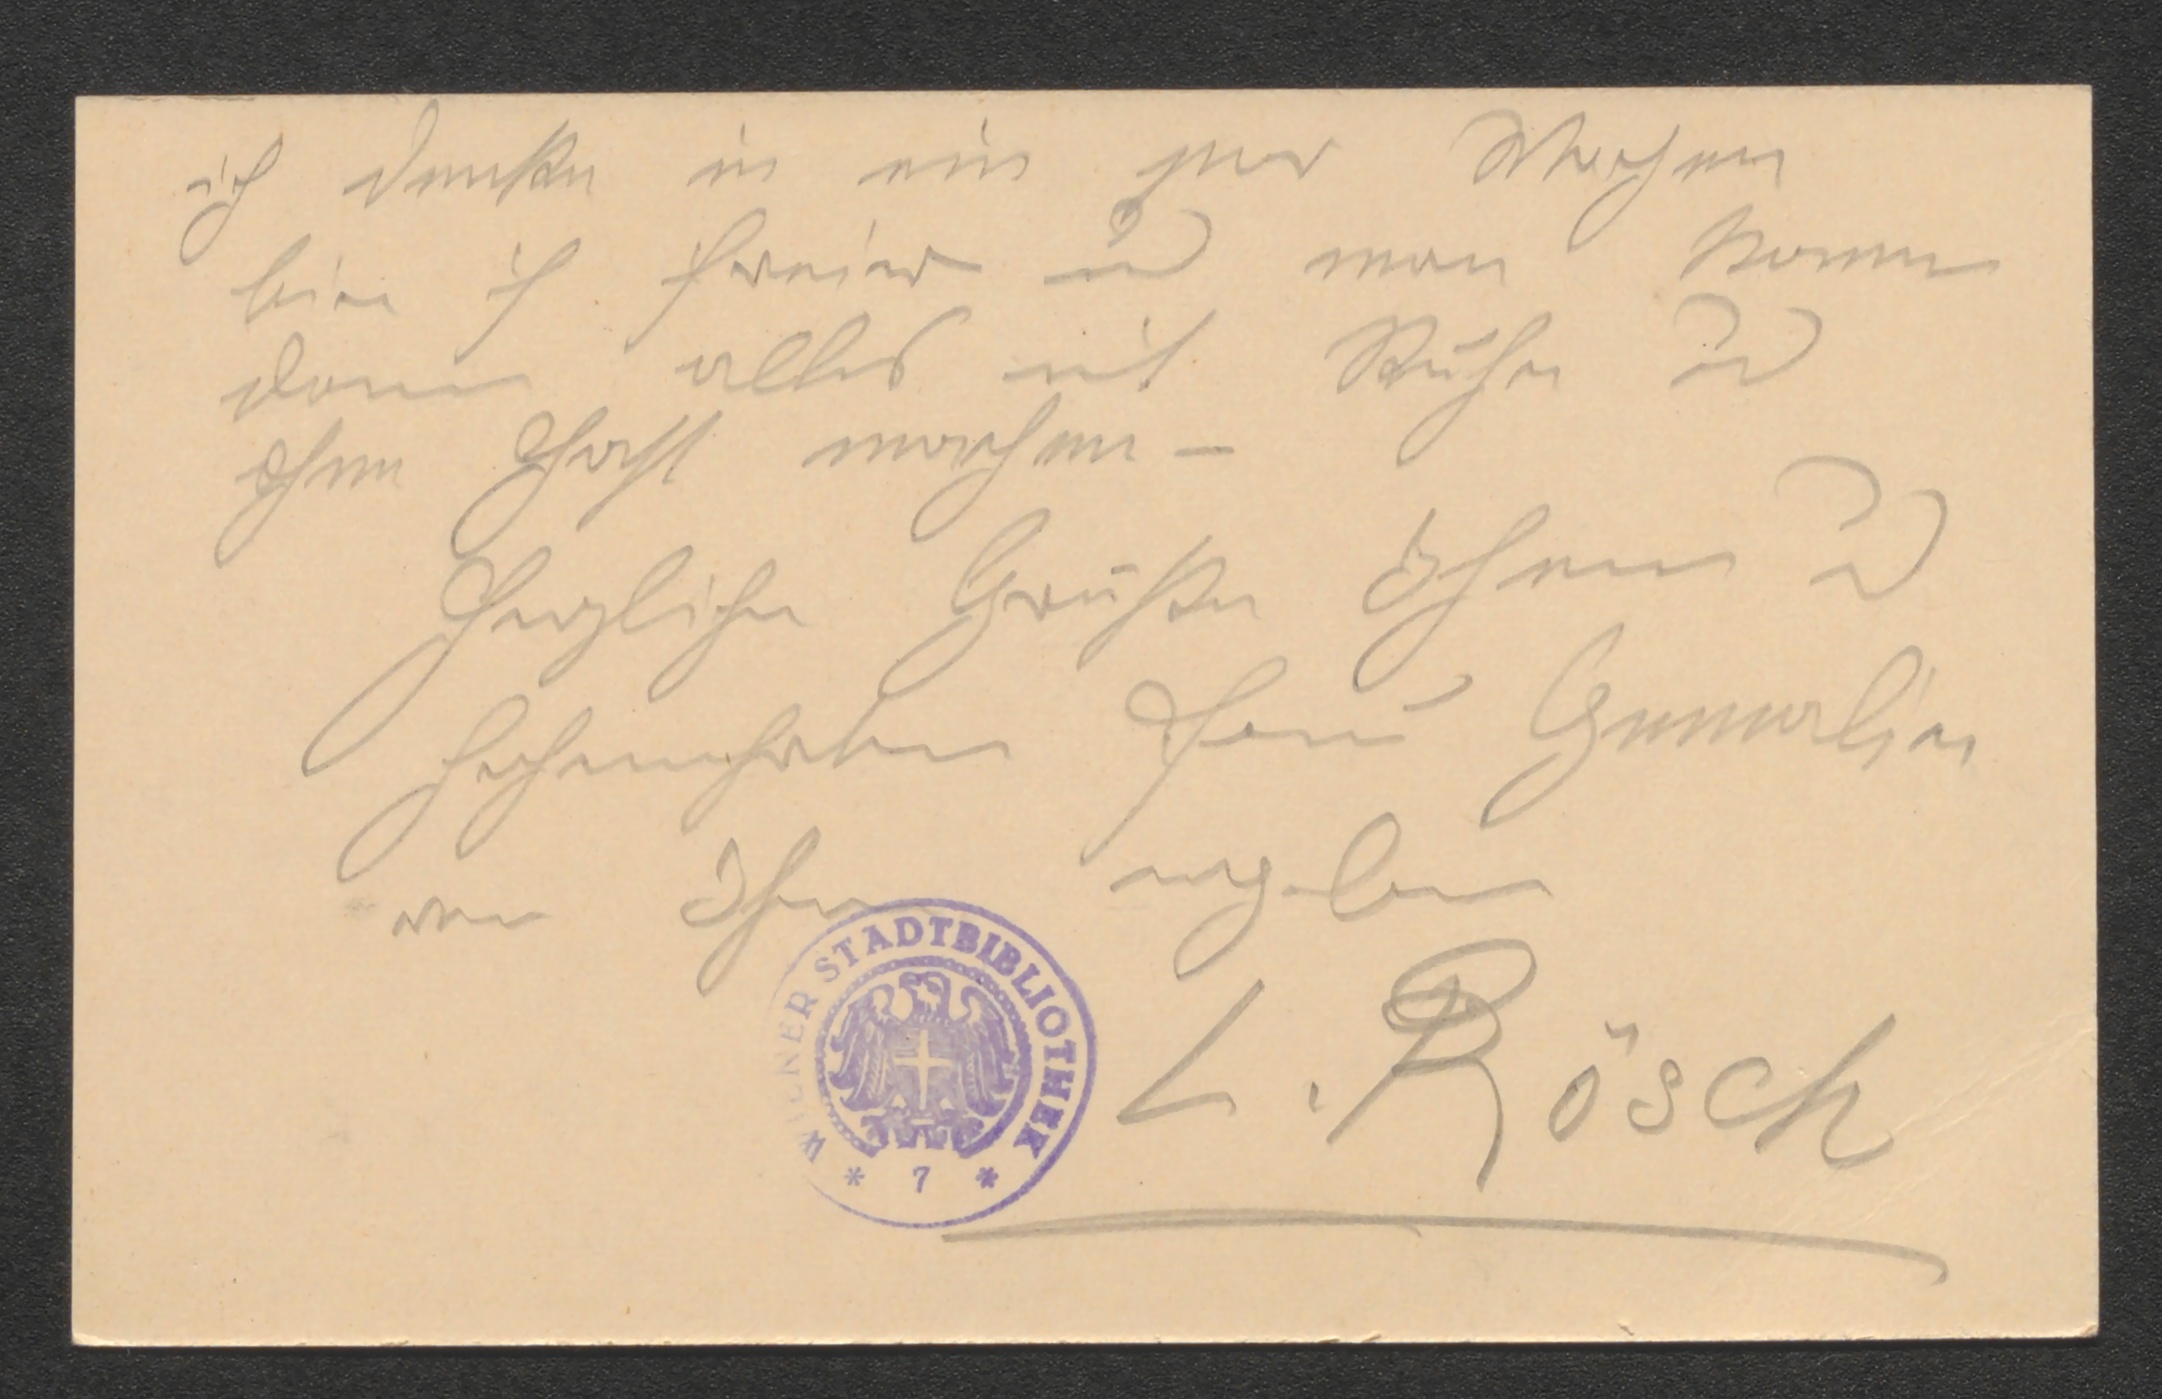 ich denke in ein paar Wochen
bin ich freier und man kann
dann alles mit Ruhe und
ohne Hast machen –
Herzliche Grüße Ihnen und
hochverehrten Frau Gemalin
von Ihren ergeben
L. Rösch
WIENER STADTBIBLIOTHEK
* 7 *